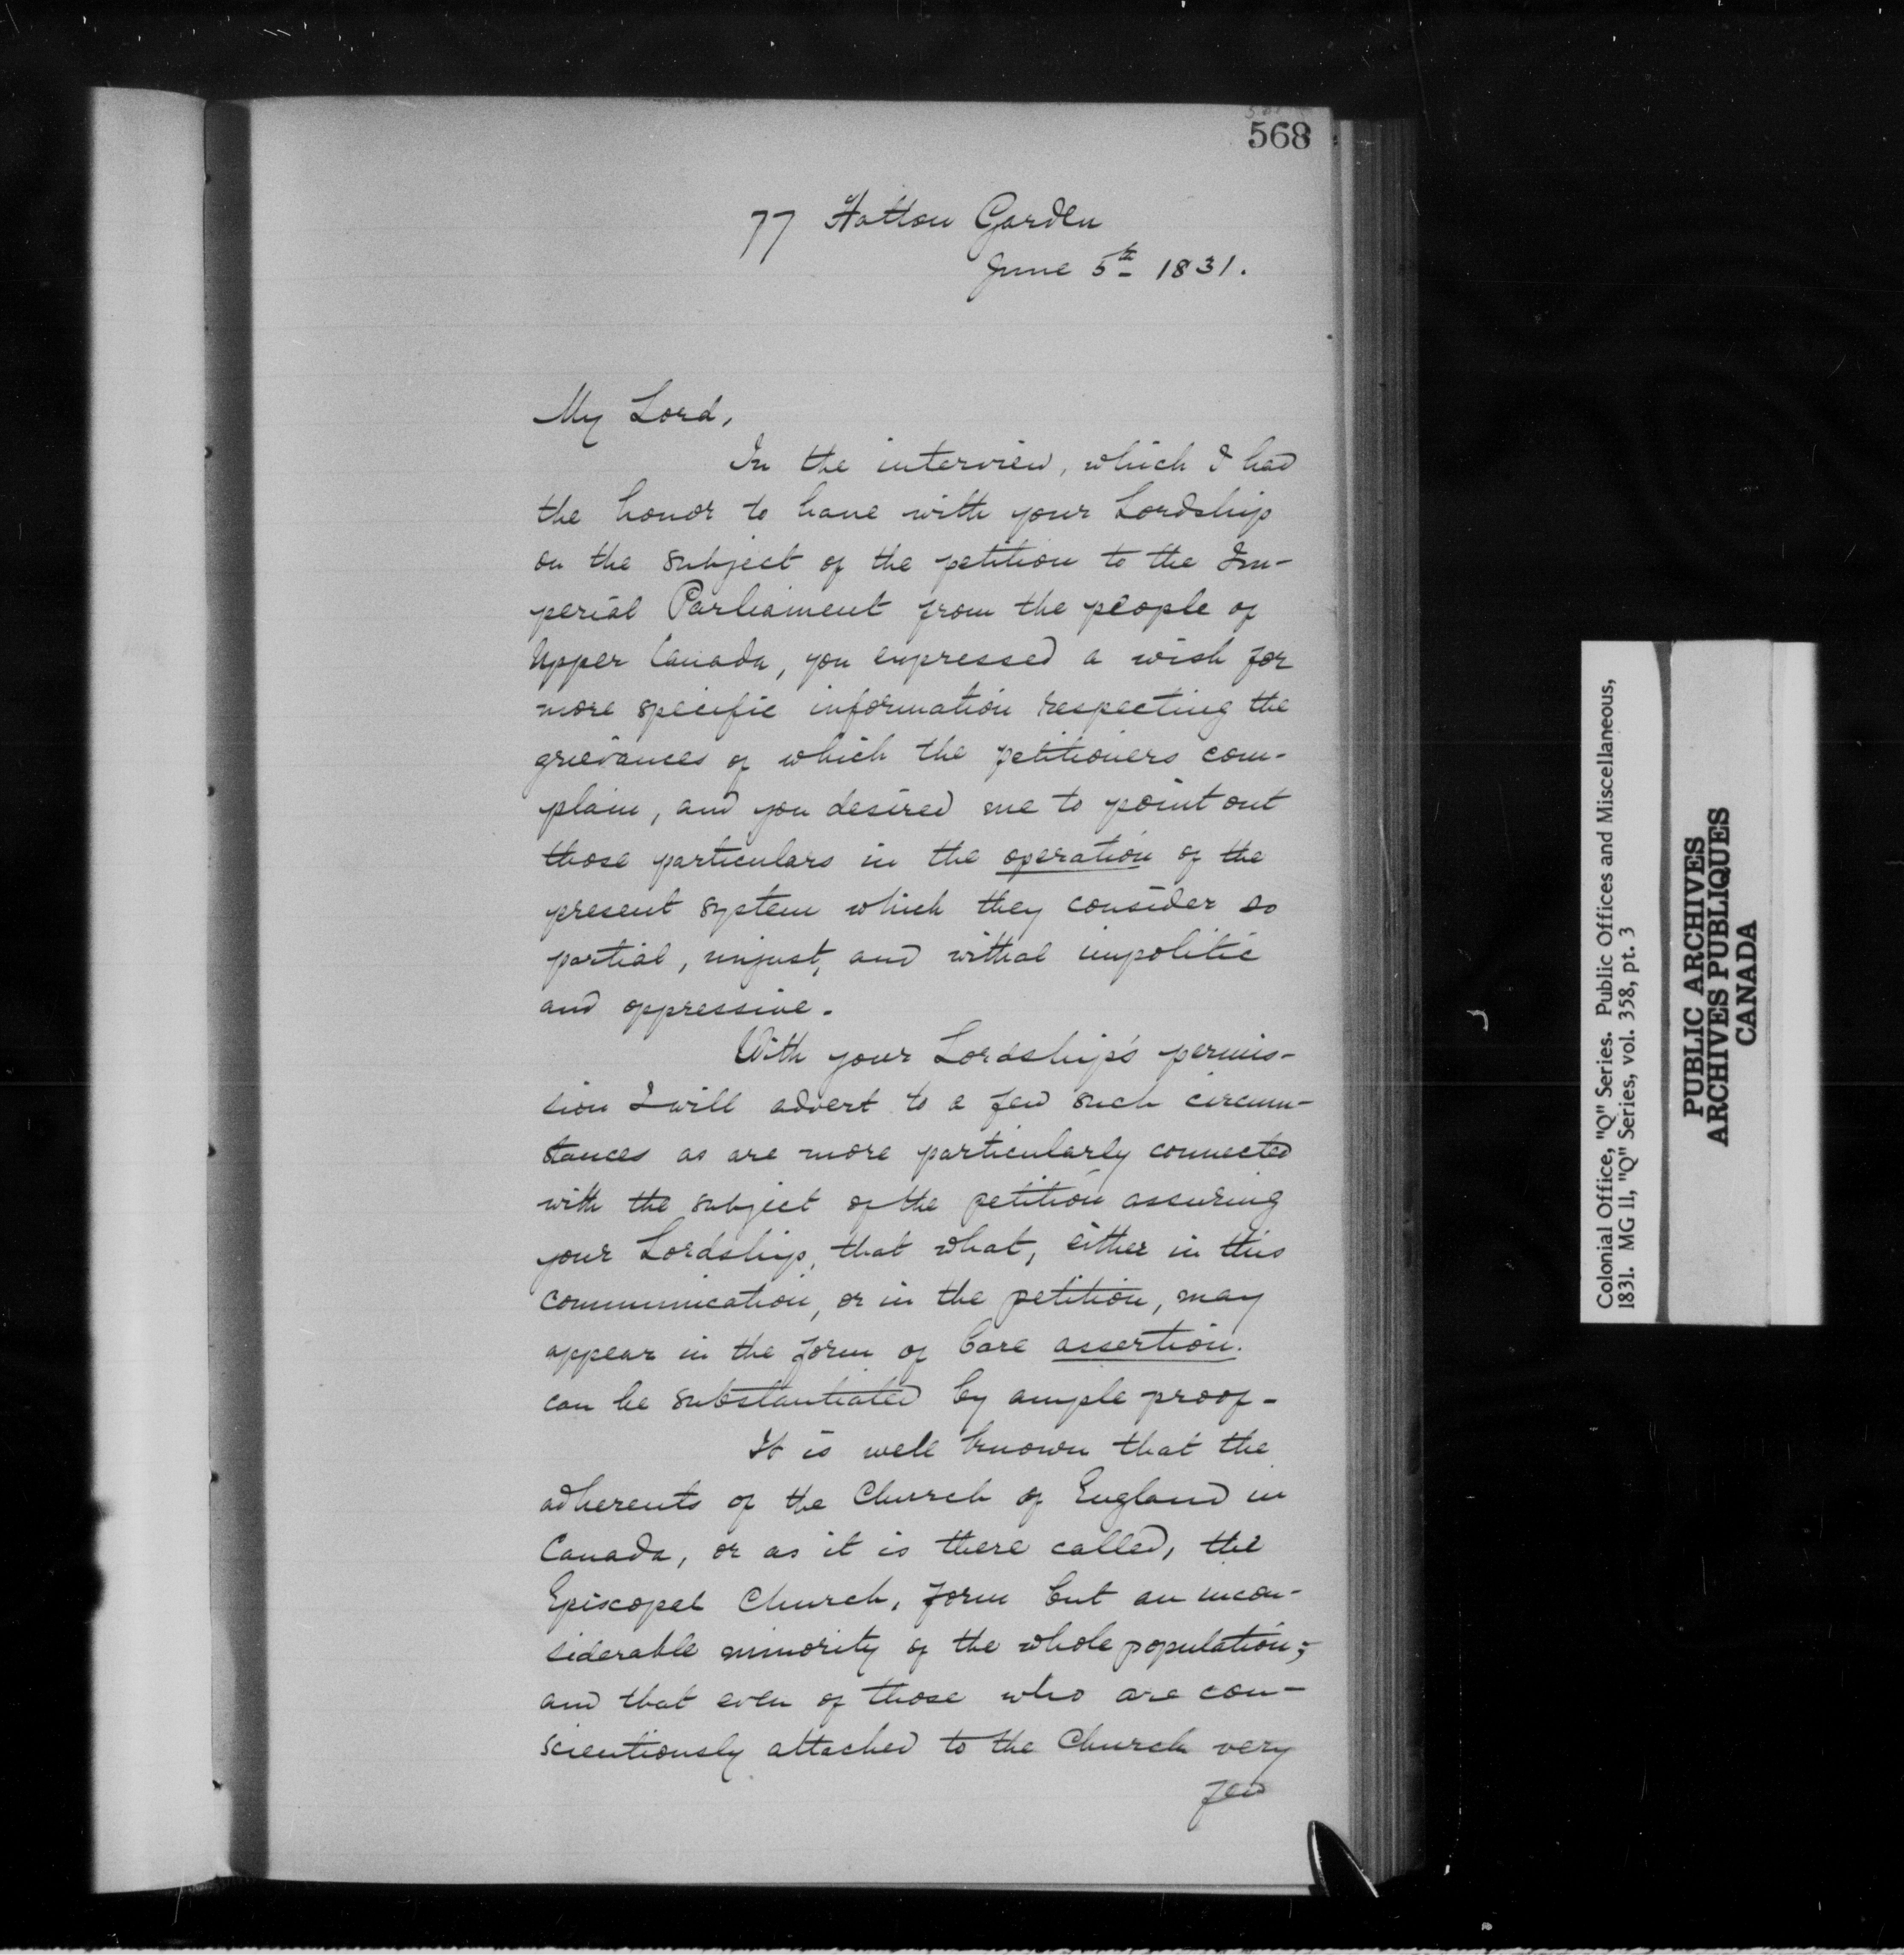 568
77 Hatton Garden
June 5th 1831.
My Lord,
In the interview, which I had
the honor to have with your Lordship
on the subject of the petition to the Im-
perial Parliament from the people of
Upper Canada, you expressed a wish for
more specific information respecting the
grievances of which the petitioners com-
plain, and you desired me to point out
those particulars in the operation of the
present system which they consider so
partial, unjust, and withal impolitic
and oppressive.
With your Lordship's permis-
sion I will advert to a few such circum-
stances as are more particularly connected
with the subject of the petition assuring
your Lordship, that what, either in this
communication, or in the petition, may
appear in the form of bare assertion.
can be substantiated by ample proof-
It is well known that the
adherents of the Church of England in
Canada, or as it is there called, the
Episcopal Church, form but an incon-
siderable minority of the whole population;
and that even of those who are con-
scientiously attached to the Church very
few
Colonial Office, "Q" Series. Public Offices and Miscellaneous,
1831. MG 11, "Q" Series, vol. 358, pt. 3
PUBLIC ARCHIVES
ARCHIVES PUBLIQUES
CANADA